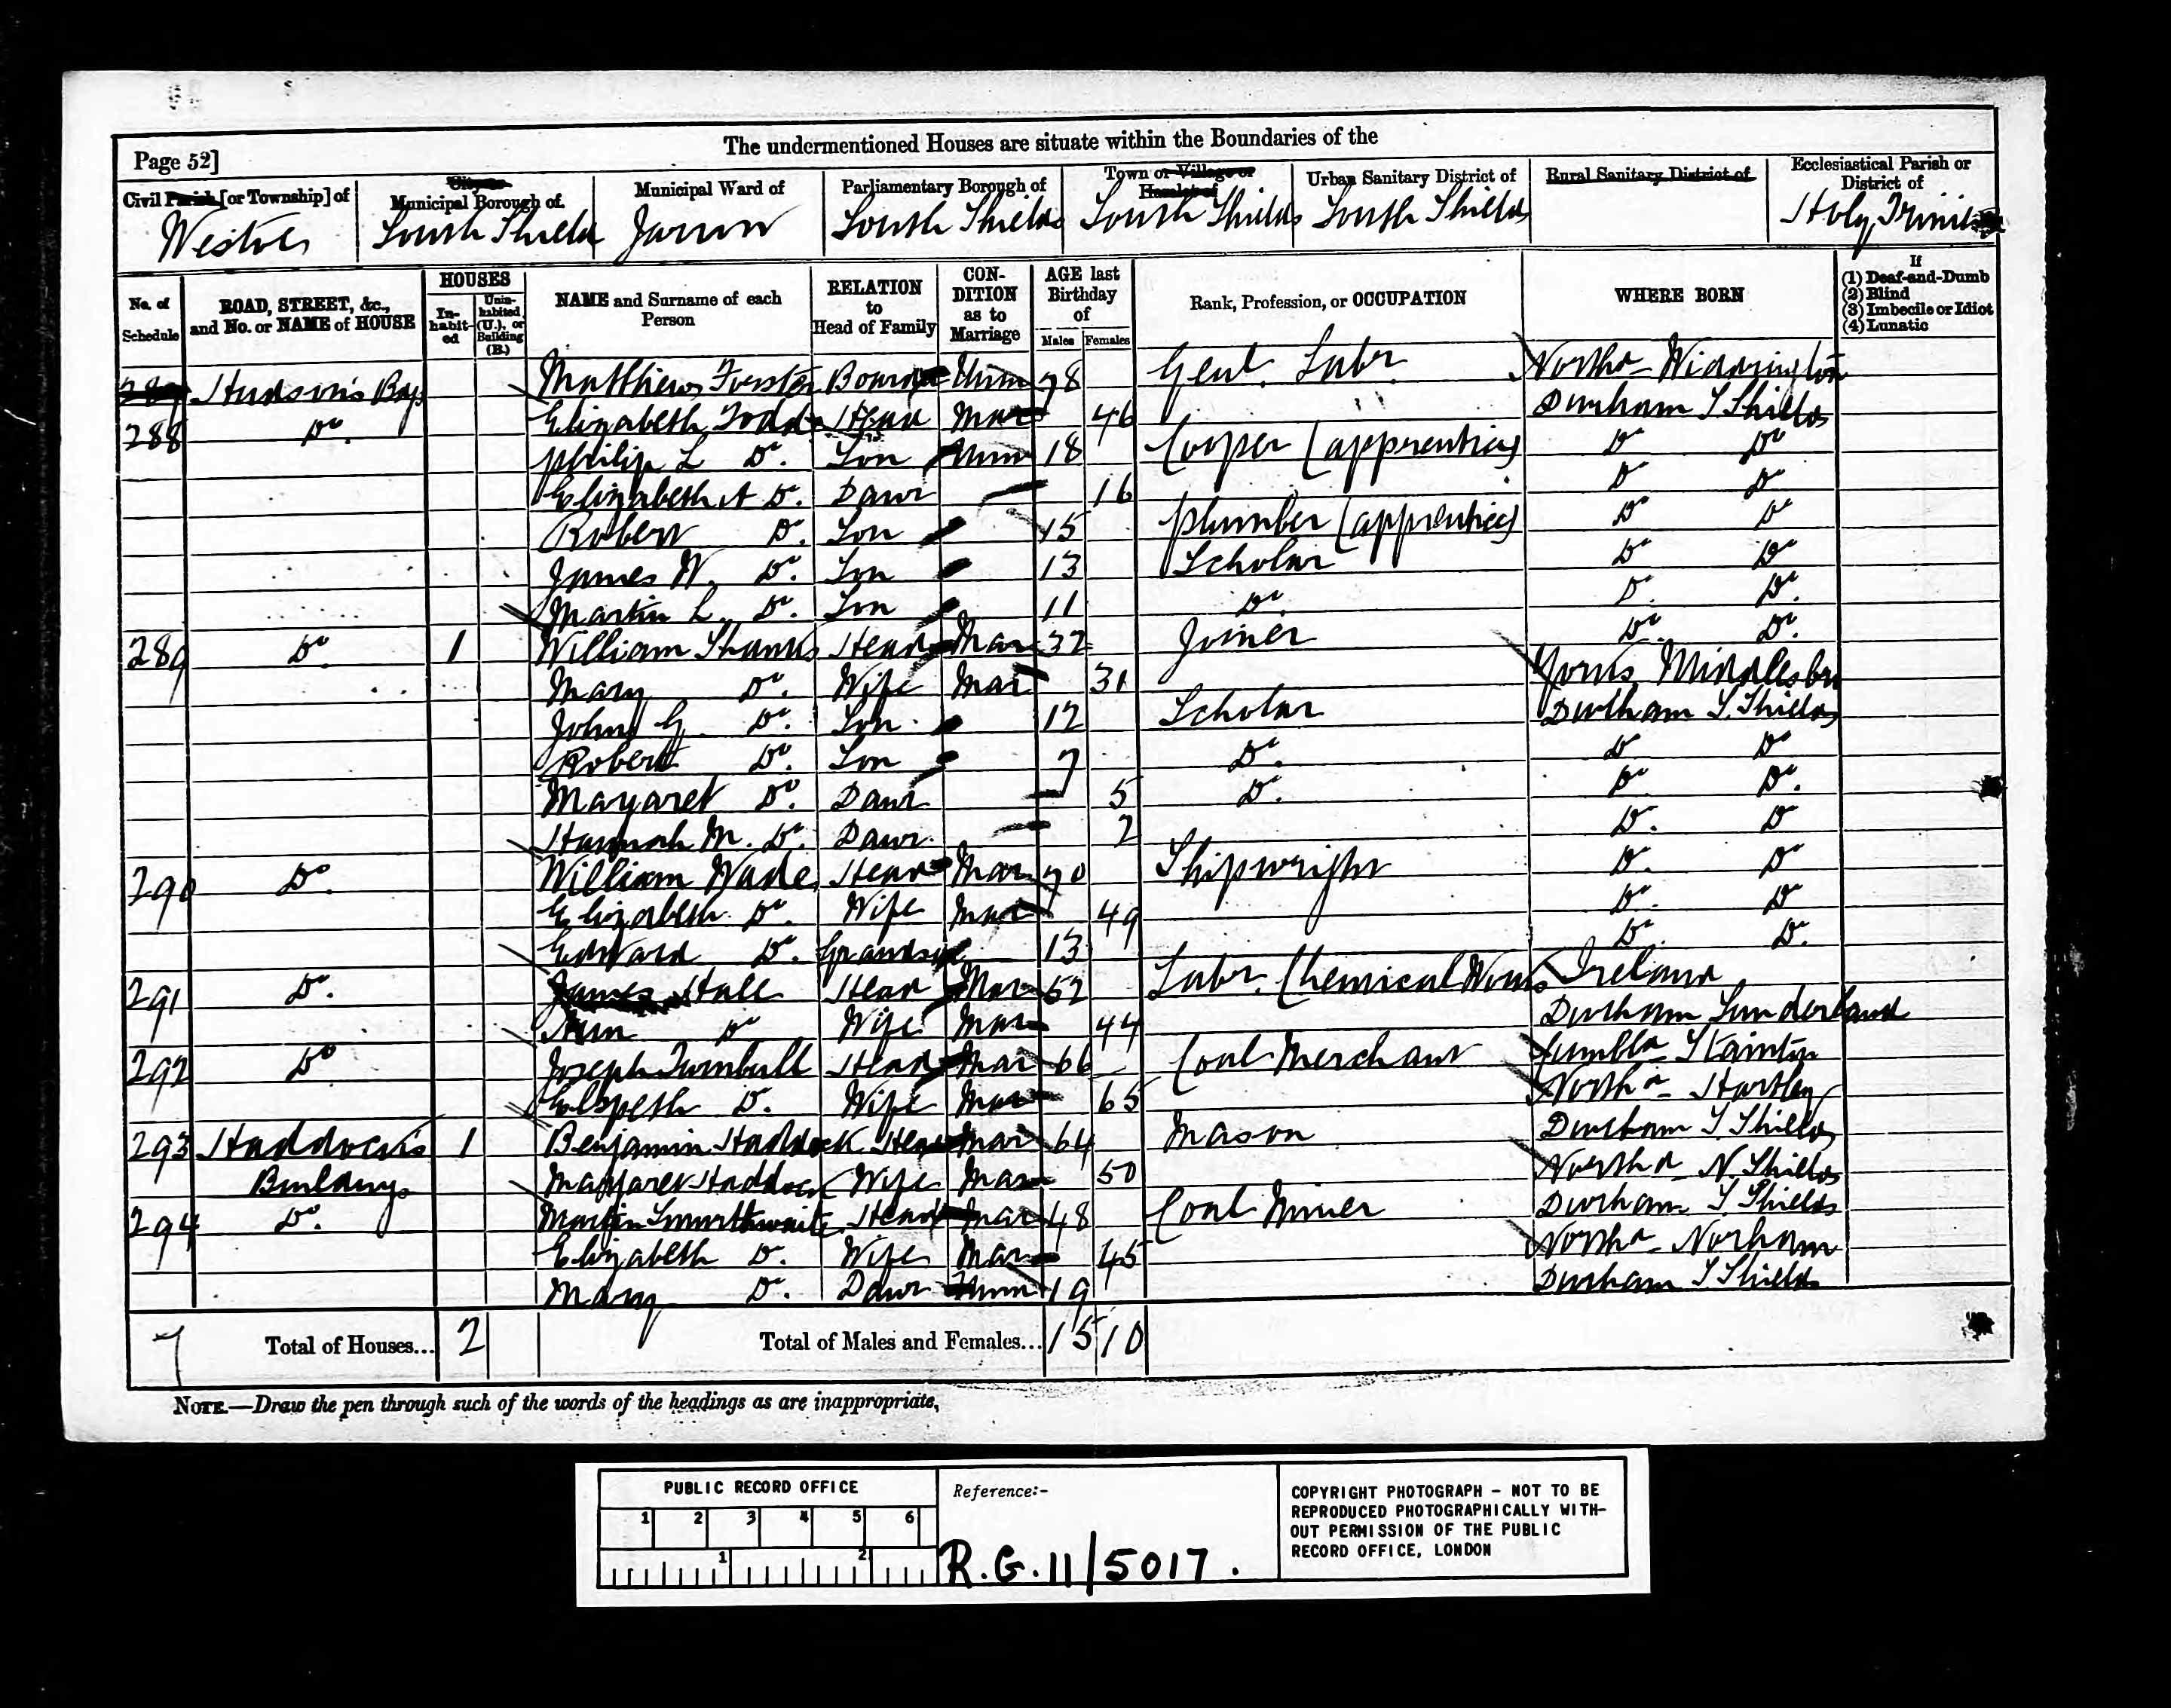 The undermentioned Houses are situate within the Boundaries of the
Page 52]
Civil Parish [or Township] of
City or Municipal Borough of
Municipal Ward of
Parliamentary Borough of
Town or Village or Hamlet of
Urban Sanitary District of
Rural Sanitary District of
Ecclesiastical Parish or District of
Westoe South Shields Jarrow South Shields South Shields South Shields Holy Trinity
No. of Schedule
ROAD, STREET, &c., and No. or NAME of HOUSE
HOUSES
In-habit-ed
Unin-habited (U.), or Building (B.)
NAME and Surname of each Person
RELATION to Head of Family
CON-DITION as to Marriage
AGE last Birthday of
Males Females
Rank, Profession, or OCCUPATION
WHERE BORN
If
(1) Deaf-and-Dumb
(2) Blind
(3) Imbecile or Idiot
(4) Lunatic
Hudson's Bay Matthew Forster Boarder Unm 78 Genl. Labr Northd Widdrington
288 Do. Elizabeth Todd Head Mar 46 Durham S Shields
Philip L Do. Son Unm 18 Cooper (apprentice) Do Do
Elizabeth A Do. Daur 16 Do Do
Robert Do. Son 15 Plumber (apprentice) Do Do
James W. Do. Son 13 Scholar Do Do
Martin L. Do. Son 11 Do. Do. Do.
289 Do 1 William Head Mar 32 Joiner Do. Do.
Mary Do. Wife Mar 31 Yorks Middlesbro
John G. Do. Son 12 Scholar Durham S. Shields
Robert Do. Son 7 Do. Do Do
Margaret Do. Daur 5 Do. Do. Do.
Hannah M. Do. Daur. 2 Do. Do
290 Do William Wade Head Mar 70 Shipwright Do. Do
Elizabeth Do. Wife Mar 49 Do. Do
Edward Do. Grandson 13 Do. Do.
291 Do. James Hall Head Mar 52 Labr. Chemical Works Ireland
Ann Do Wife Mar 44 Durham Sunderland
292 Do Joseph Turnbull Head Mar 66 Coal Merchant Cumbld Stainton
Elspeth Do. Wife Mar 65 Northd Hartley
293 Haddock's 1 Benjamin Haddock Head Mar 64 Mason Durham S Shields
Buildings Margaret Haddock Wife Mar 50 Northd N. Shields
294 Do. Martin Smurthwaite Head Mar 48 Coal Miner Durham S Shields
Elizabeth Do. Wife Mar 45 Northd Norham
Mary Do. Daur Unm 19 Durham S Shields
7 Total of Houses... 2 Total of Males and Females... 15 10
NOTE.—Draw the pen through such of the words of the headings as are inappropriate.
PUBLIC RECORD OFFICE
1 2 3 4 5 6
1 2
Reference:-
R.G. 11/5017.
COPYRIGHT PHOTOGRAPH - NOT TO BE
REPRODUCED PHOTOGRAPHICALLY WITH-
OUT PERMISSION OF THE PUBLIC
RECORD OFFICE, LONDON